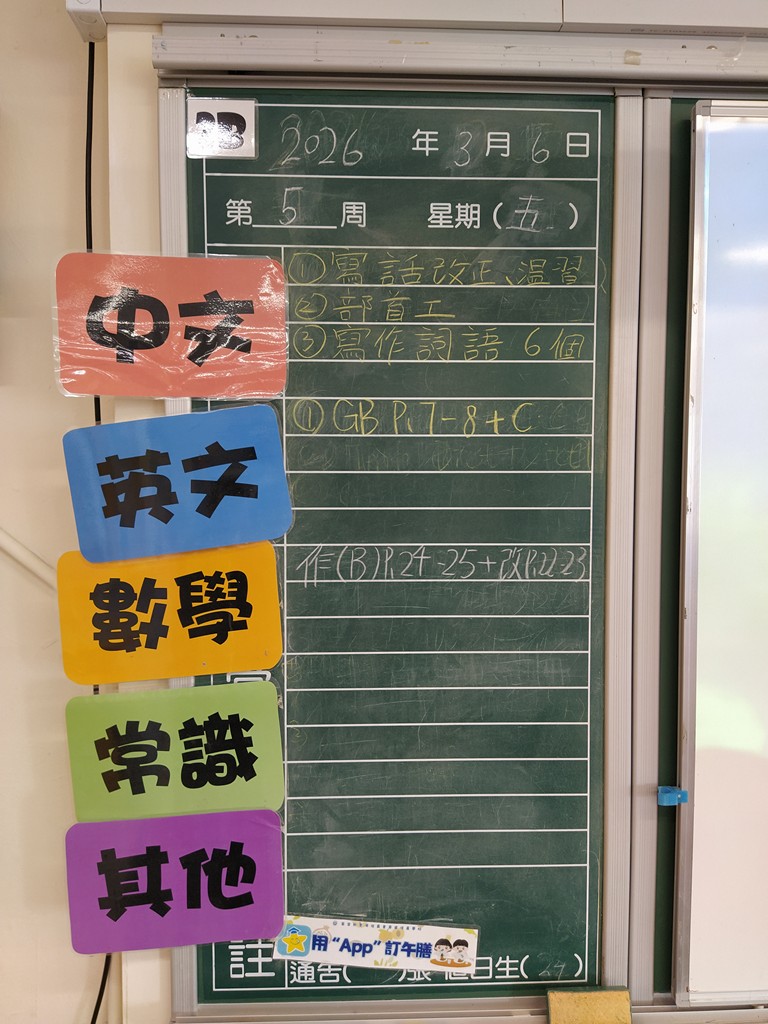 2026 年 3 月 6 日
第 5 周 星期(五)
中文
①寫話改正、溫習
②部首工
③寫作詞語 6個
英文
①GB P.7-8+C
數學
作(B)P.24-25+改P.22-23
常識
其他
用“App”訂午膳
註
通告( 張 值日生( )